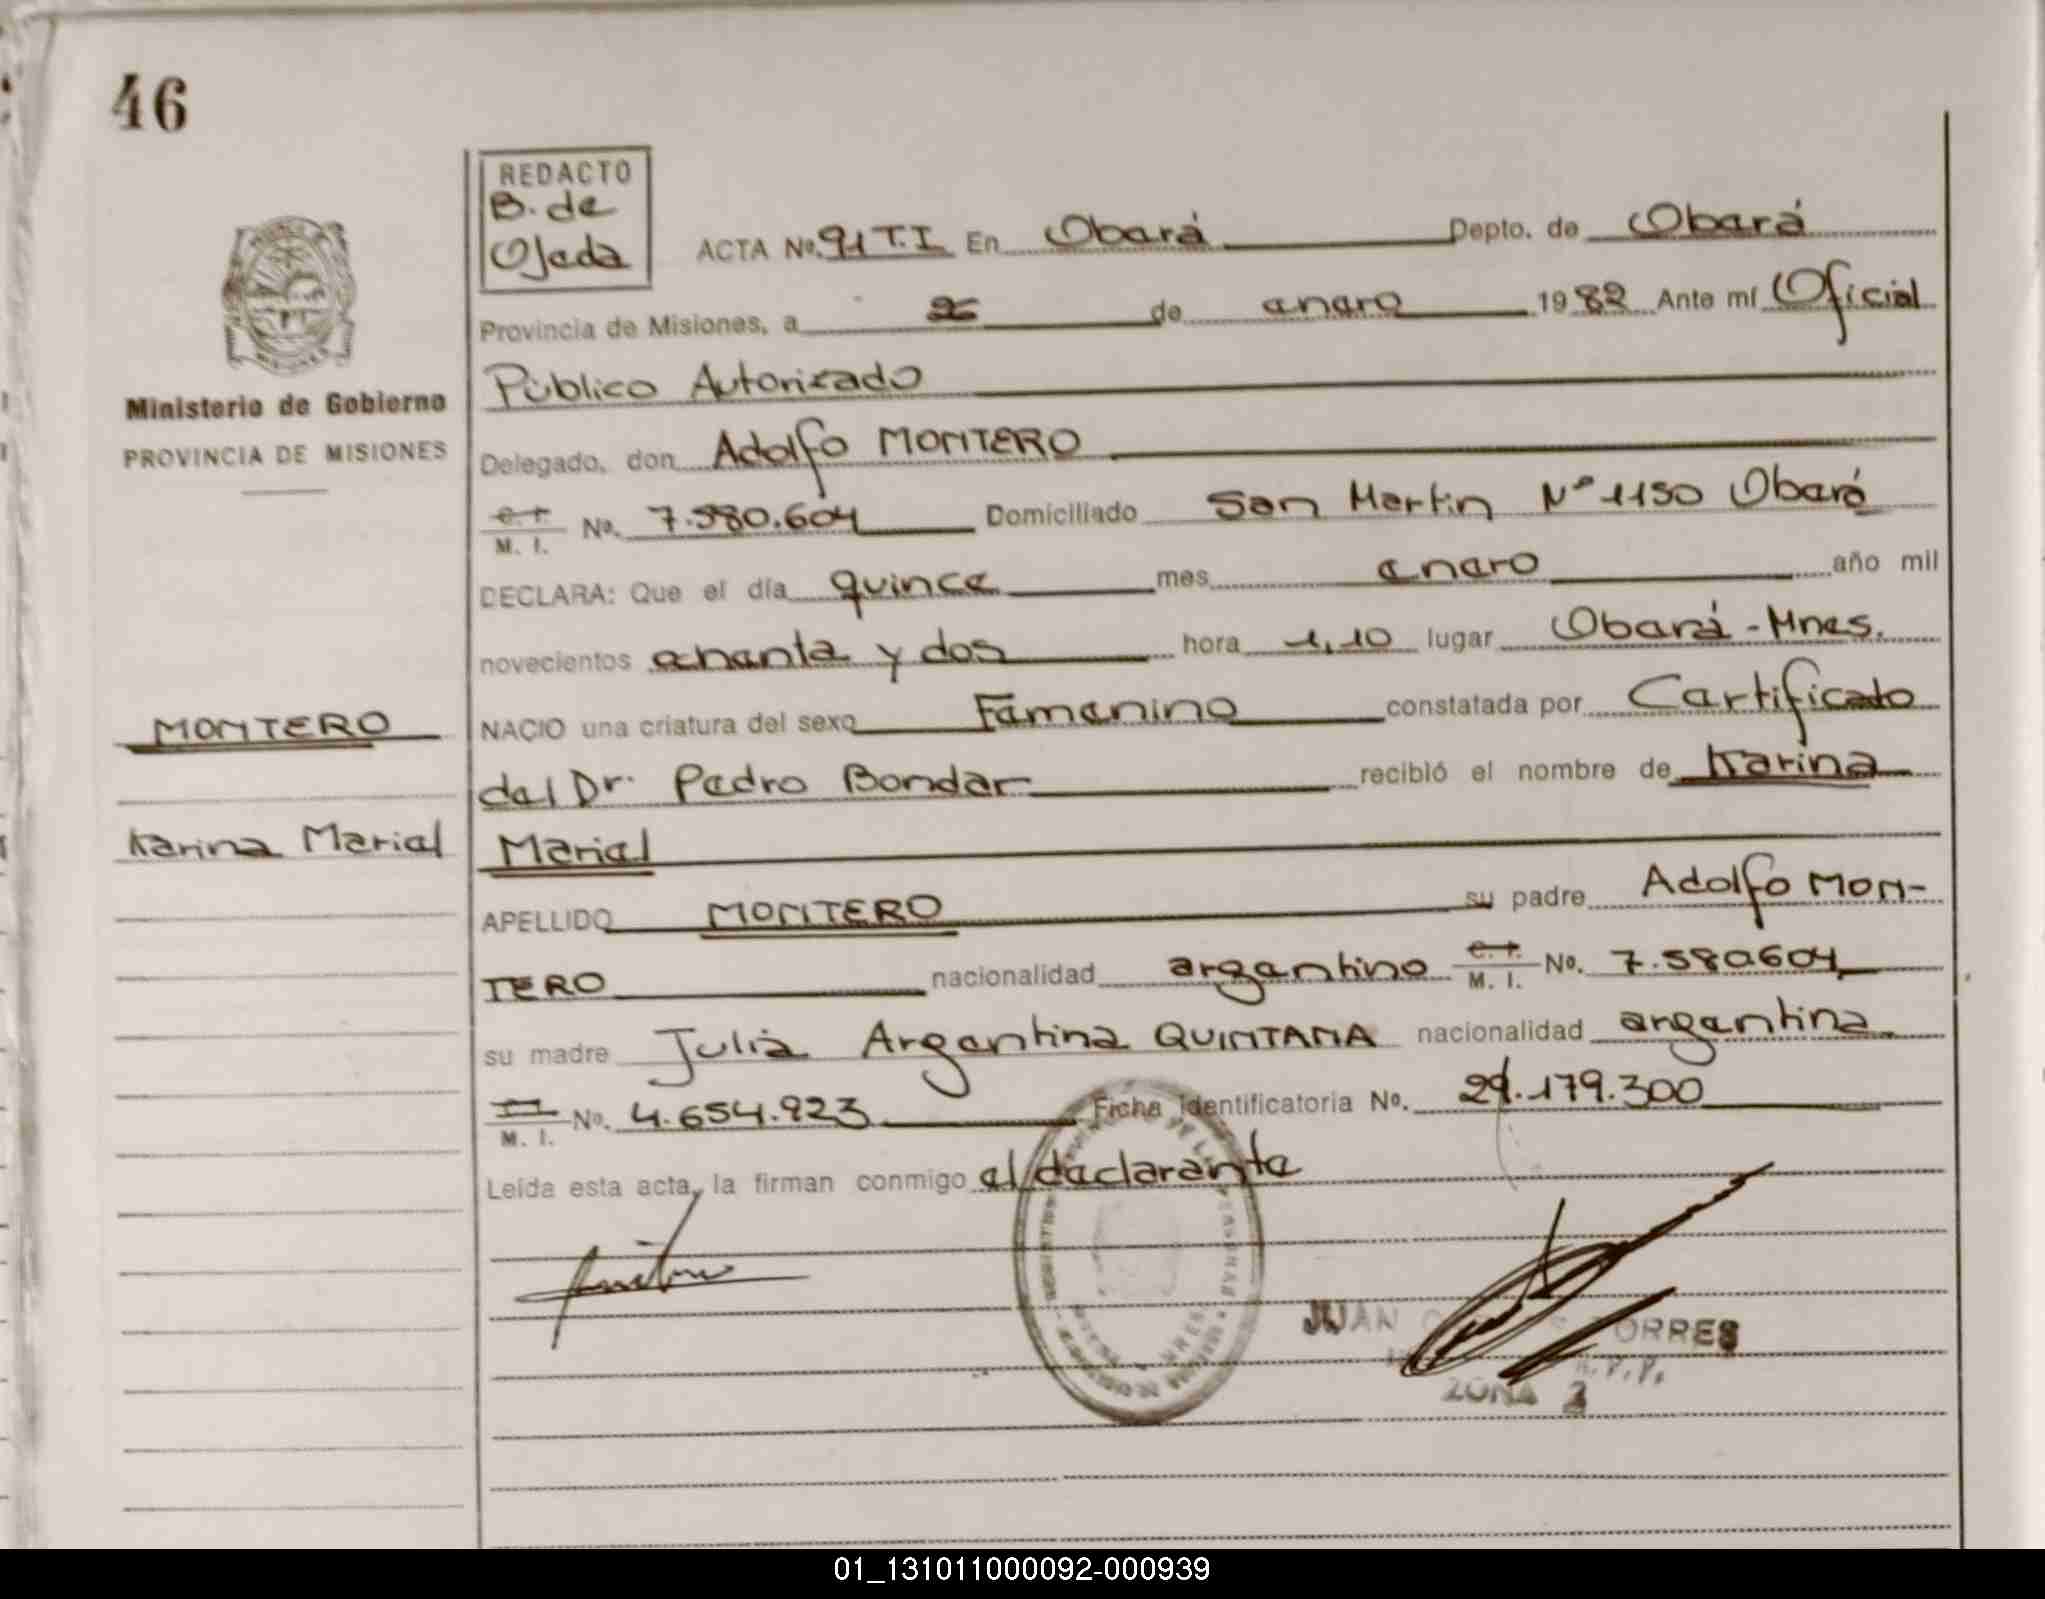 46
REDACTO
B. de
Ojeda
ACTA No. 91 T.I En Oberá Depto. de Oberá
Provincia de Misiones, a de enero 1982 Ante mí Oficial
Público Autorizado
Ministerio de Gobierno
PROVINCIA DE MISIONES
Delegado, don Adolfo MONTERO
C. I.
M. I. No. 7.580.604 Domiciliado San Martin Nº 1150 Oberá
DECLARA: Que el día quince mes enero año mil
novecientos ochenta y dos hora 1,10 lugar Oberá - Mnes.
NACIO una criatura del sexo Femenino constatada por Certificado
del Dr. Pedro Bondar recibió el nombre de Karina
MONTERO
Karina Mariel
Mariel
APELLIDO MONTERO su padre Adolfo MON-
TERO nacionalidad argentino C. I.
M. I. No. 7.580604
su madre Julia Argentina QUINTANA nacionalidad argentina
M. I. No. 4.654.923 Ficha identificatoria No. 29.179.300
Leida esta acta, la firman conmigo el declarante
JUAN TORRES
ZONA 2
01_131011000092-000939